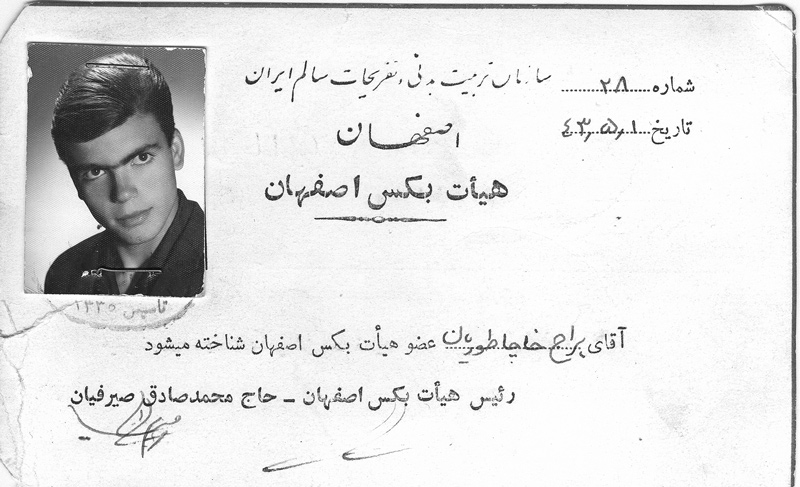 سازمان تربیت بدنی و تفریحات سالم ایران
شماره ۲۸
تاریخ ۴۳٫۵٫۱
اصفهان
هیأت بکس اصفهان
تاسیس ۱۳۳۵
آقای براج خاچاطوریان عضو هیأت بکس اصفهان شناخته میشود
رئیس هیأت بکس اصفهان ـ حاج محمدصادق صیرفیان